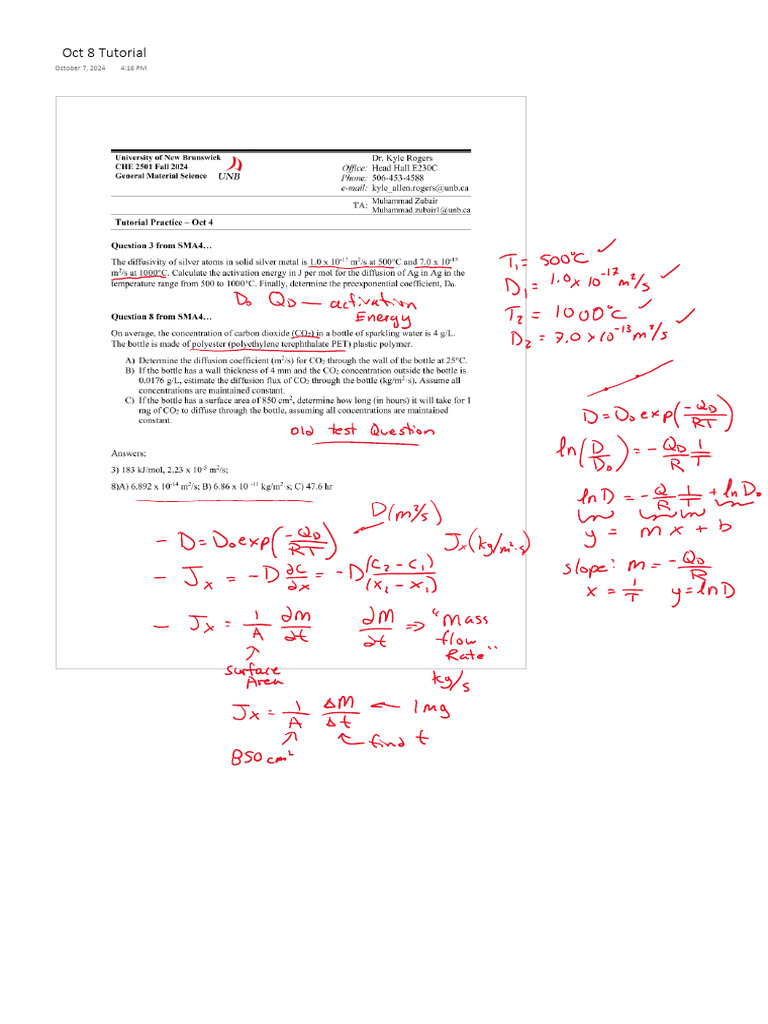 Oct 8 Tutorial
October 7, 2024 4:16 PM
University of New Brunswick
CHE 2501 Fall 2024
General Material Science
UNB
Dr. Kyle Rogers
Office: Head Hall E230C
Phone: 506-453-4588
e-mail: kyle_allen.rogers@unb.ca
TA: Muhammad Zubair
Muhammad.zubair1@unb.ca
Tutorial Practice – Oct 4
Question 3 from SMA4…
The diffusivity of silver atoms in solid silver metal is 1.0 x 10⁻¹⁷ m²/s at 500°C and 7.0 x 10⁻¹³
m²/s at 1000°C. Calculate the activation energy in J per mol for the diffusion of Ag in Ag in the
temperature range from 500 to 1000°C. Finally, determine the preexponential coefficient, D₀.
D₀ Q_D — activation
Energy
Question 8 from SMA4…
On average, the concentration of carbon dioxide (CO₂) in a bottle of sparkling water is 4 g/L.
The bottle is made of polyester (polyethylene terephthalate PET) plastic polymer.
A) Determine the diffusion coefficient (m²/s) for CO₂ through the wall of the bottle at 25°C.
B) If the bottle has a wall thickness of 4 mm and the CO₂ concentration outside the bottle is
0.0176 g/L, estimate the diffusion flux of CO₂ through the bottle (kg/m²·s). Assume all
concentrations are maintained constant.
C) If the bottle has a surface area of 850 cm², determine how long (in hours) it will take for 1
mg of CO₂ to diffuse through the bottle, assuming all concentrations are maintained
constant.
Old test Question
Answers:
3) 183 kJ/mol, 2.23 x 10⁻⁵ m²/s;
8)A) 6.892 x 10⁻¹⁴ m²/s; B) 6.86 x 10 ⁻¹¹ kg/m²·s; C) 47.6 hr
T₁ = 500°C ✓
D₁ = 1.0 x 10⁻¹⁷ m²/s ✓
T₂ = 1000°C ✓
D₂ = 7.0 x 10⁻¹³ m²/s ✓
D = D₀ exp(-Q_D/RT)
ln(D/D₀) = -Q_D/R 1/T
lnD = -Q/R 1/T + lnD₀
y = m x + b
slope: m = -Q_D/R
x = 1/T y = lnD
D(m²/s)
– D = D₀ exp(-Q_D/RT)
Jx (kg/m²·s)
– Jx = -D ∂C/∂x = -D (C₂ - C₁)/(x₂ - x₁)
– Jx = 1/A ∂M/∂t ∂M/∂t ⇒ "Mass
flow
Rate"
surface
Area
kg/s
Jx = 1/A ΔM/Δt ← 1mg
← find t
850 cm²